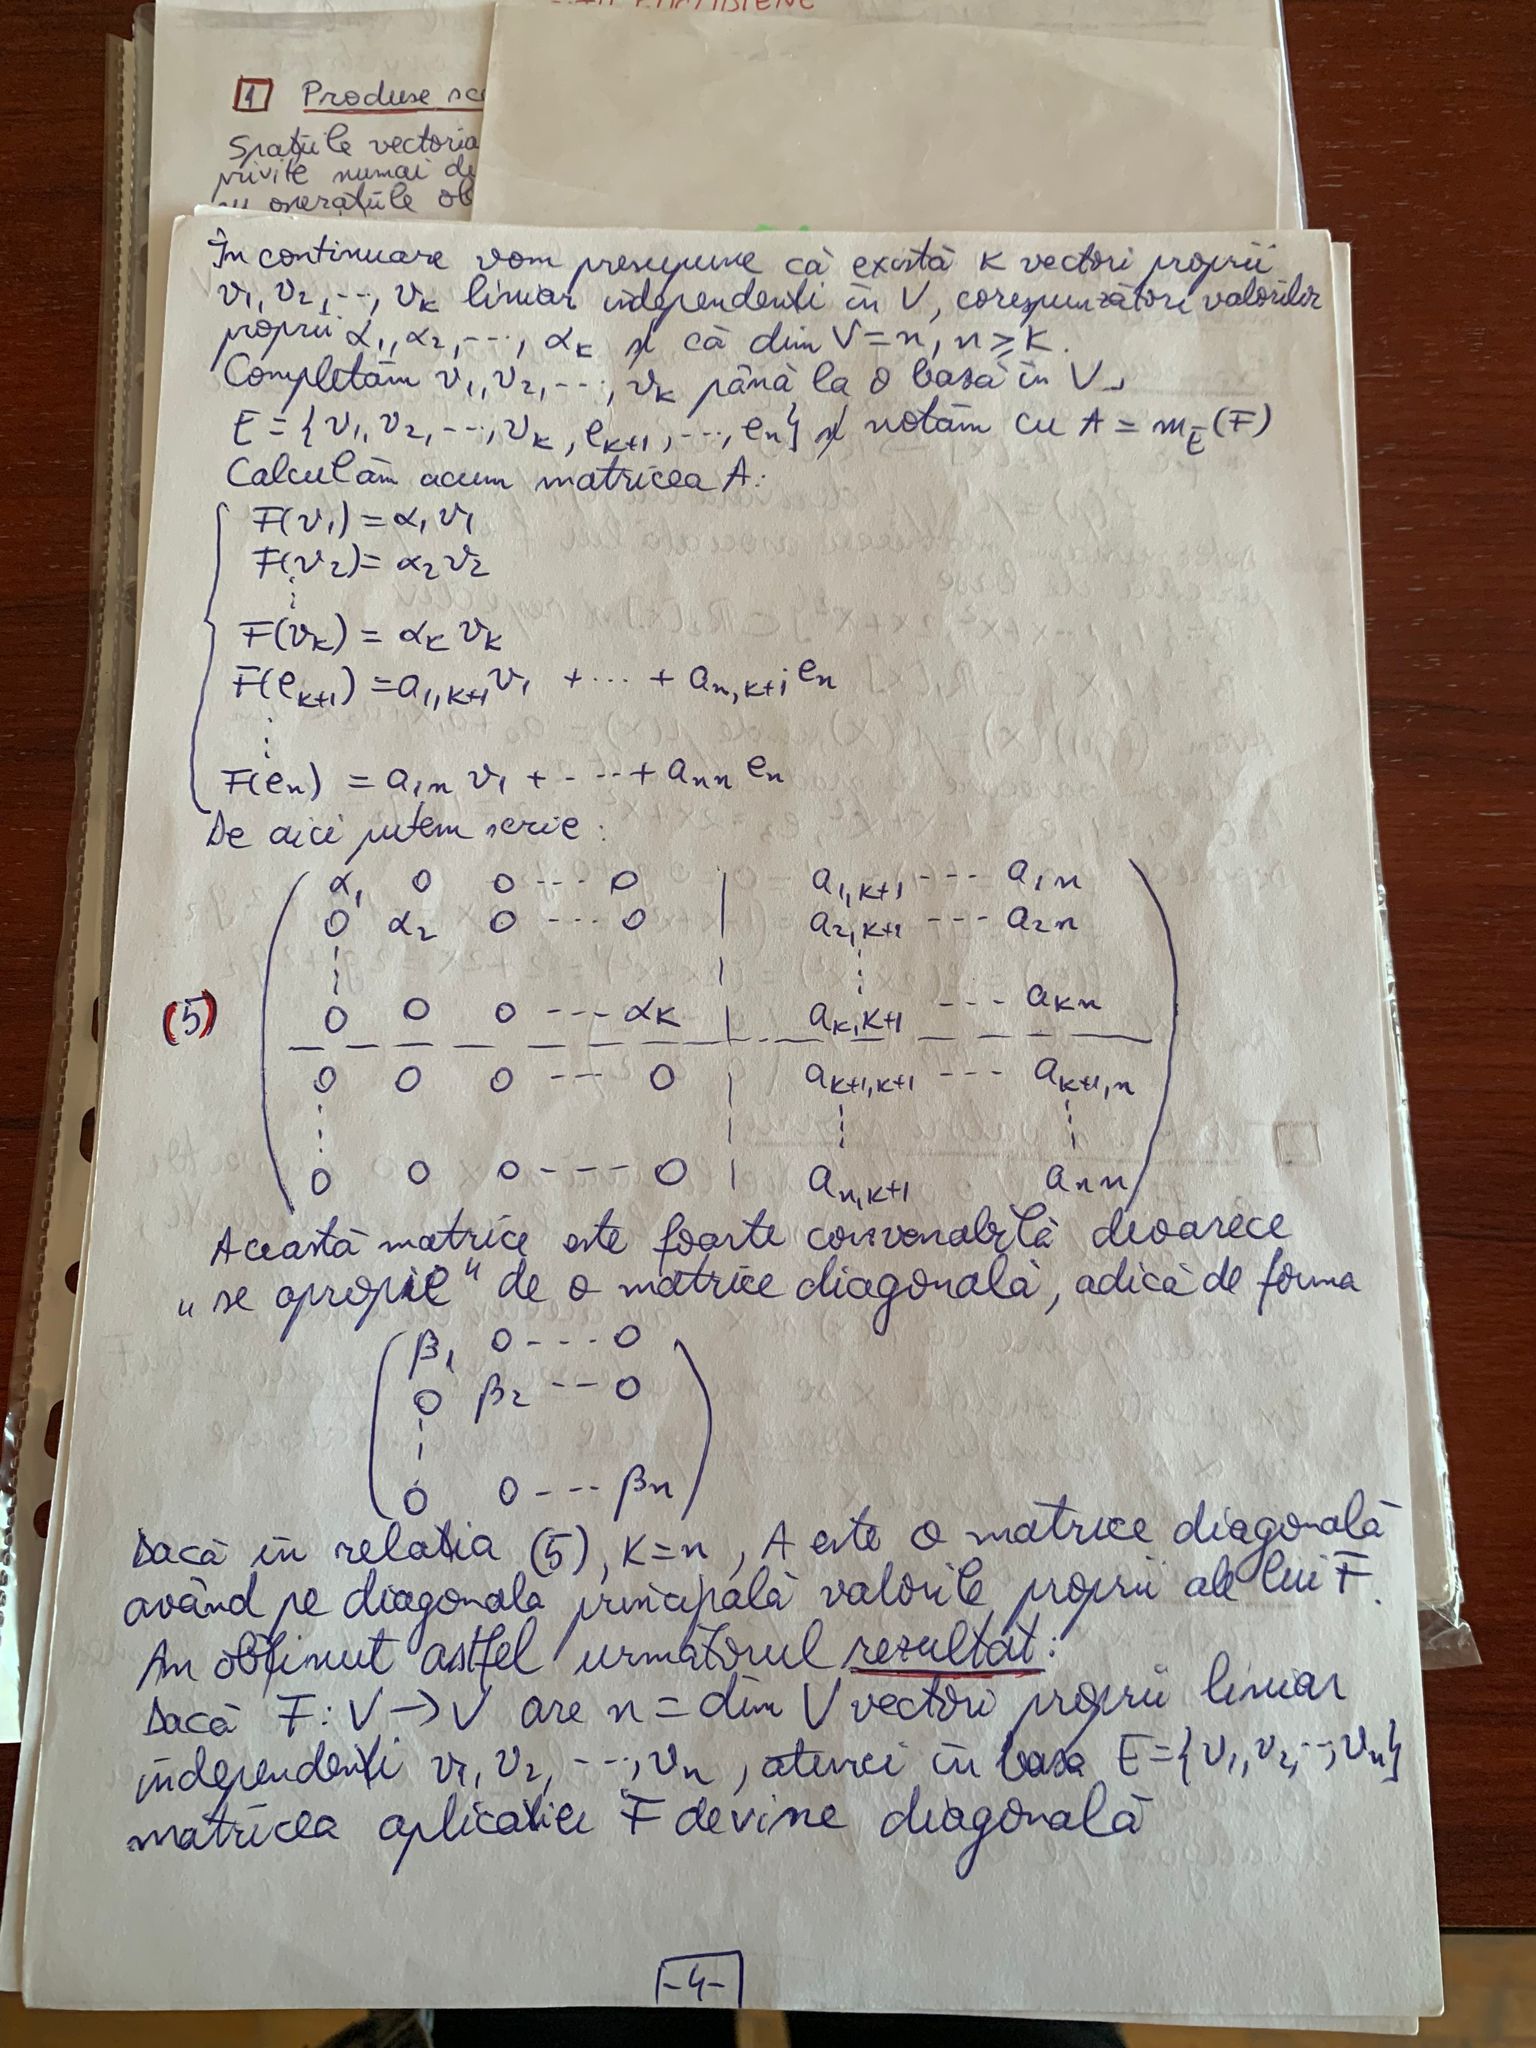 1 Produse sc
Spațiile vectoria
privite numai de
cu operațiile ob
În continuare vom presupune că există k vectori proprii
v₁, v₂, ..., vₖ liniar independenți în V, corespunzători valorilor
proprii α₁, α₂, ..., αₖ și că dim V = n, n ≥ k.
Completăm v₁, v₂, ..., vₖ până la o bază în V
E = {v₁, v₂, ..., vₖ, eₖ₊₁, ..., eₙ} și notăm cu A = m_E(F)
Calculăm acum matricea A:
F(v₁) = α₁v₁
F(v₂) = α₂v₂
⋮
F(vₖ) = αₖvₖ
F(eₖ₊₁) = a₁,ₖ₊₁v₁ + ... + aₙ,ₖ₊₁eₙ
⋮
F(eₙ) = a₁ₙv₁ + ... + aₙₙeₙ
De aici putem scrie:
α₁ 0 0 --- 0 | a₁,ₖ₊₁ --- a₁ₙ
0 α₂ 0 --- 0 | a₂,ₖ₊₁ --- a₂ₙ
⋮ | ⋮
(5) 0 0 0 --- αₖ | aₖ,ₖ₊₁ --- aₖₙ
0 0 0 --- 0 | aₖ₊₁,ₖ₊₁ --- aₖ₊₁,ₙ
⋮ | ⋮ ⋮
0 0 0 --- 0 | aₙ,ₖ₊₁ aₙₙ
Această matrice este foarte convenabilă deoarece
„se apropie" de o matrice diagonală, adică de forma
β₁ 0 --- 0
0 β₂ -- 0
⋮
0 0 --- βₙ
Dacă în relația (5), k = n, A este o matrice diagonală
având pe diagonala principală valorile proprii ale lui F.
Am obținut astfel următorul rezultat:
Dacă F: V → V are n = dim V vectori proprii liniar
independenți v₁, v₂, ..., vₙ, atunci în baza E = {v₁, v₂, .., vₙ}
matricea aplicației F devine diagonală
-4-